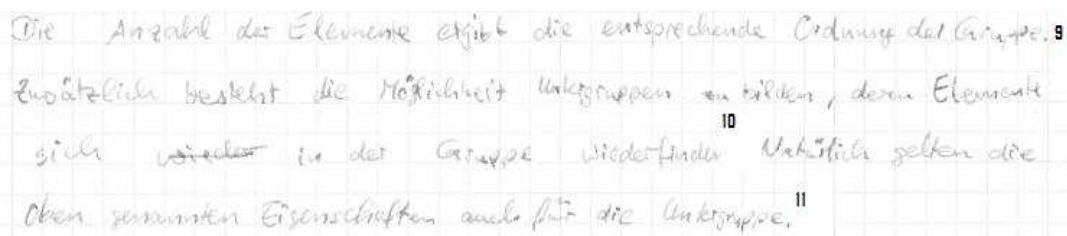 Die Anzahl der Elemente ergibt die entsprechende Ordnung der Gruppe. 9
Zusätzlich besteht die Möglichkeit Untergruppen zu bilden, deren Elemente
10
sich wieder in der Gruppe wiederfinden Natürlich gelten die
oben genannten Eigenschaften auch für die Untergruppe. 11